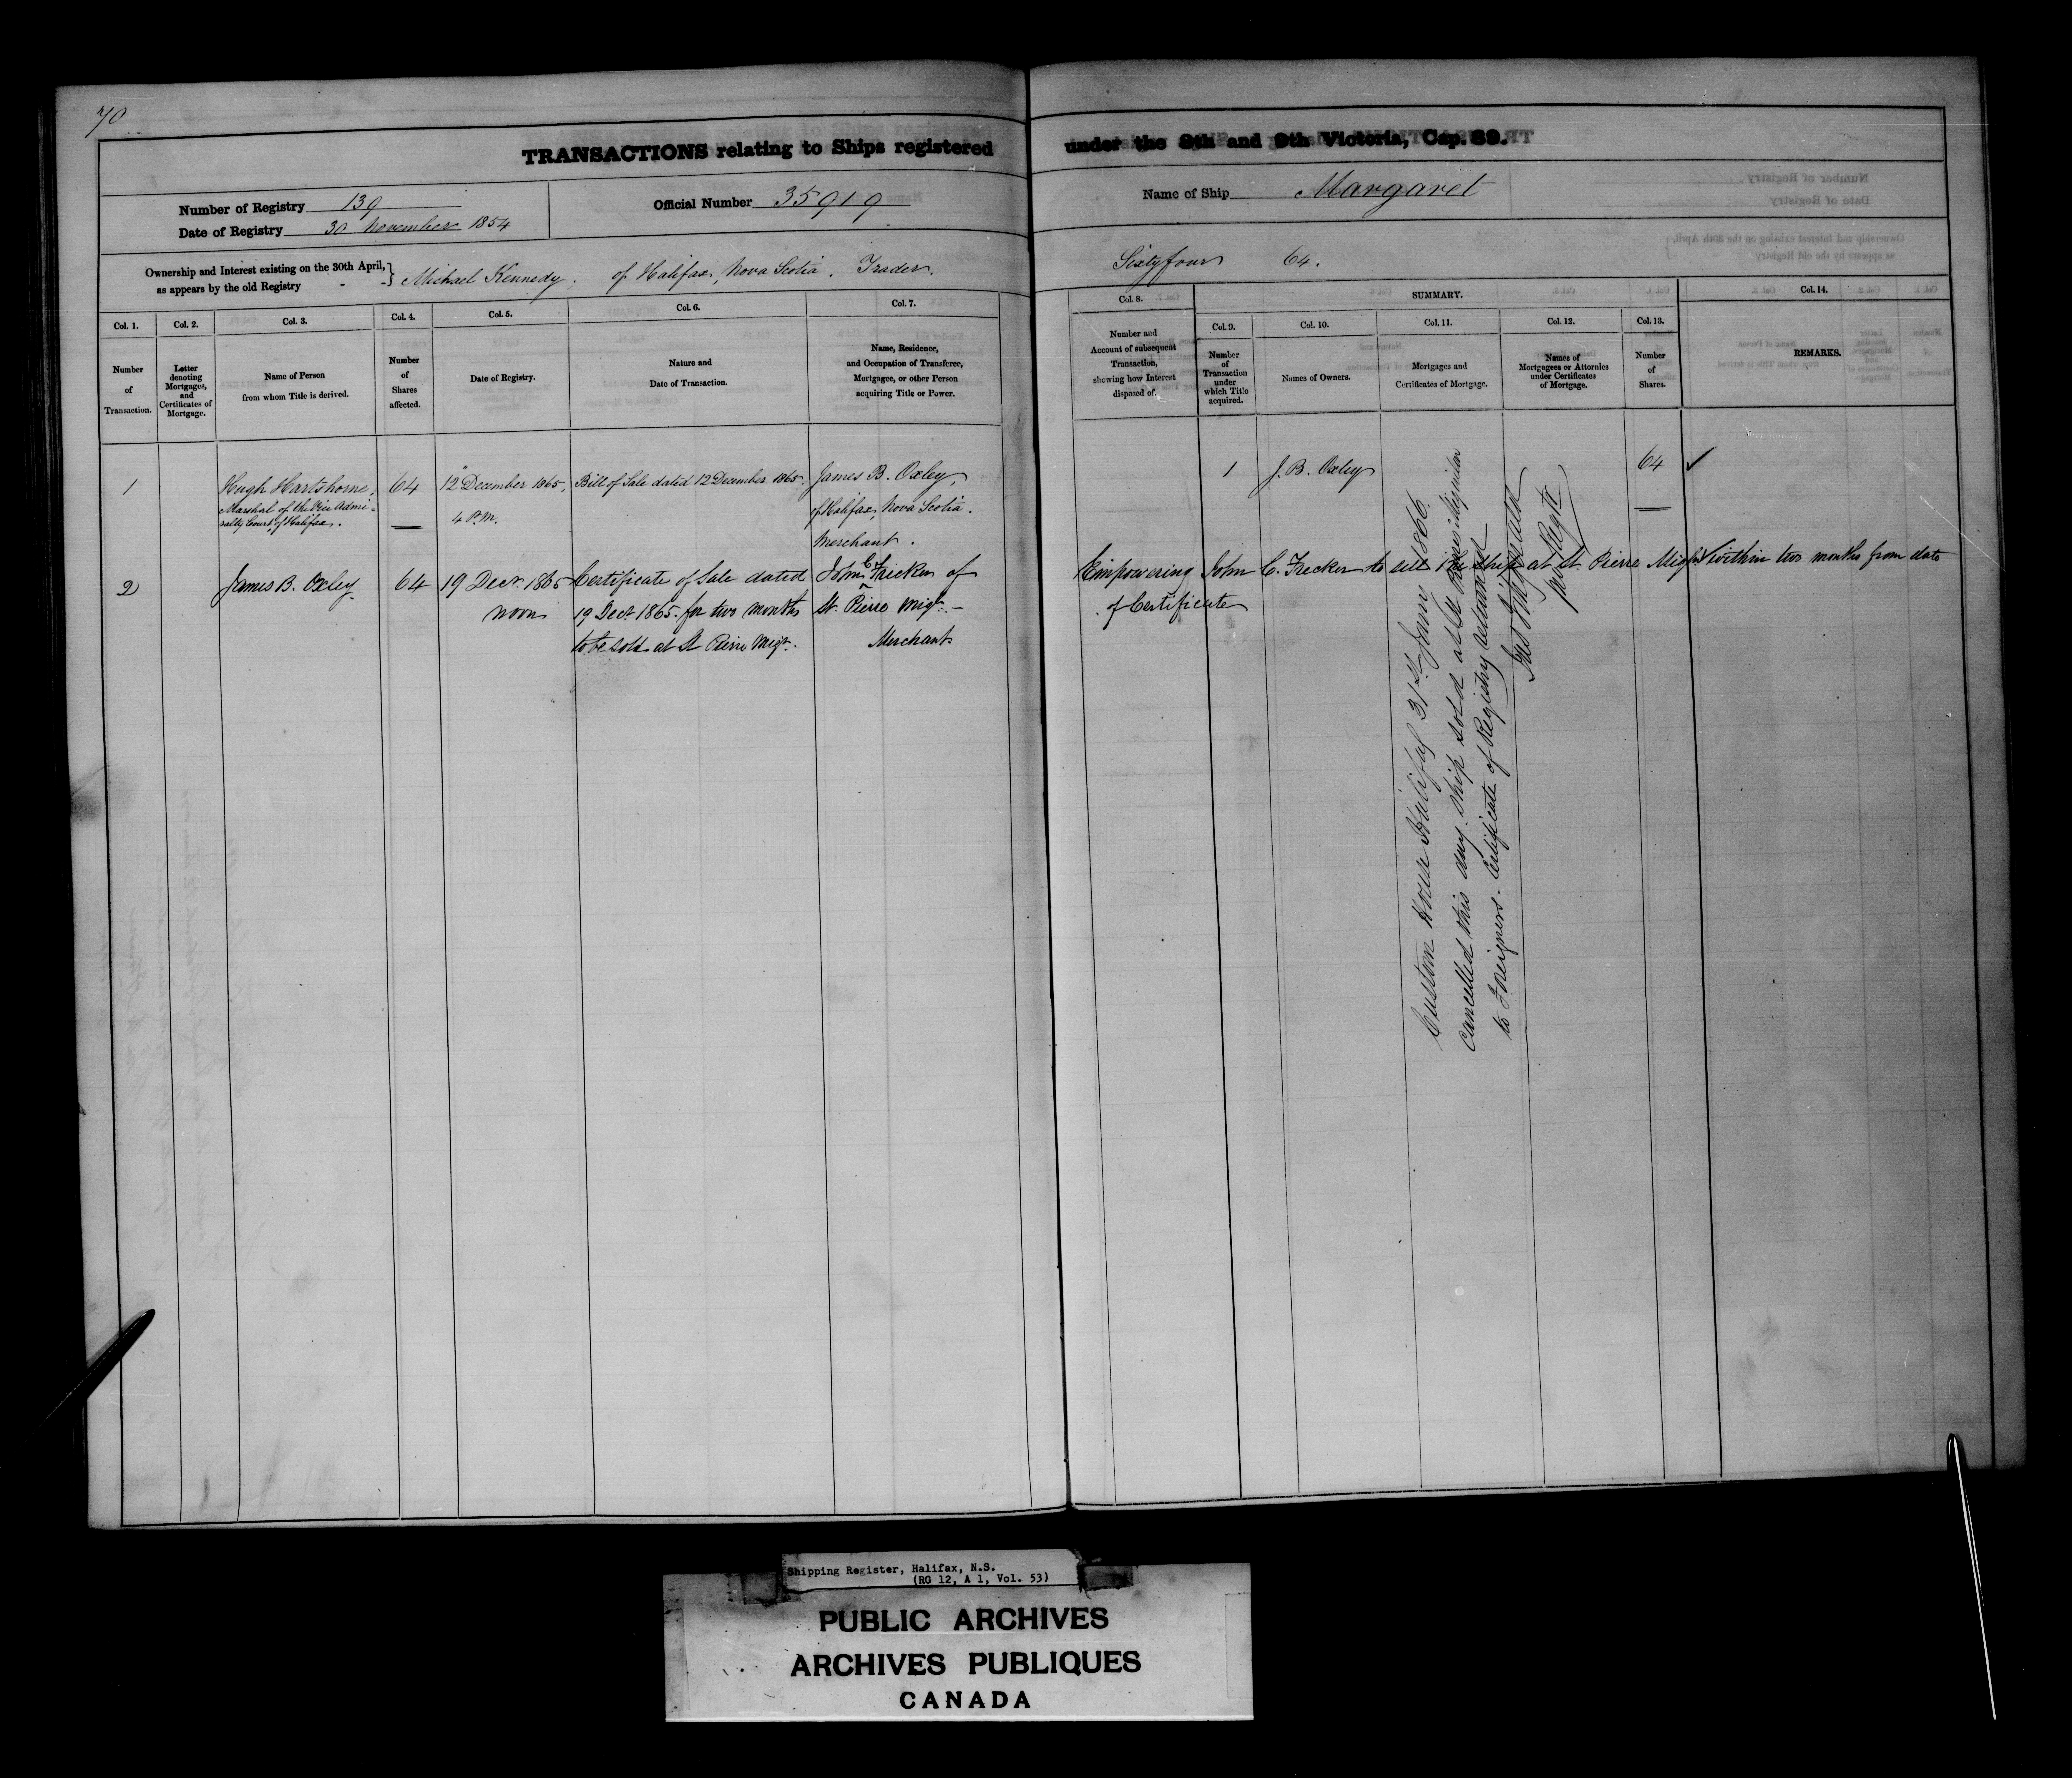 70
TRANSACTIONS relating to Ships registered under the 8th and 9th Victoria, Cap. 89.
Number of Registry 139
Date of Registry 30 November 1854
Official Number 35919
Name of Ship Margaret
Ownership and Interest existing on the 30th April,
as appears by the old Registry - -} Michael Kennedy, of Halifax, Nova Scotia. Trader. Sixtyfour 64.
Col. 1. Col. 2. Col. 3. Col. 4. Col. 5. Col. 6. Col. 7.
Number
of
Transaction.
Letter
denoting
Mortgages,
and
Certificates of
Mortgage.
Name of Person
from whom Title is derived.
Number
of
Shares
affected.
Date of Registry.
Nature and
Date of Transaction.
Name, Residence,
and Occupation of Transferee,
Mortgagee, or other Person
acquiring Title or Power.
Col. 8.
Number and
Account of subsequent
Transaction,
showing how Interest
disposed of.
SUMMARY.
Col. 9. Col. 10. Col. 11. Col. 12. Col. 13.
Number
of
Transaction
under
which Title
acquired.
Names of Owners.
Mortgages and
Certificates of Mortgage.
Names of
Mortgagees or Attornies
under Certificates
of Mortgage.
Number
of
Shares.
Col. 14.
REMARKS.
1
Hugh Hartshorne,
Marshal of the Vice Admi-
ralty Court of Halifax.
64
12 December 1865,
4 P.M.
Bill of Sale dated 12 December 1865.
James B. Oxley,
of Halifax, Nova Scotia.
Merchant.
1 J. B. Oxley 64 ✓
2
James B. Oxley
64
19 Decr. 1865
noon
Certificate of Sale dated
19 Decr 1865. for two months
to be sold at St Pierre Miqn.
John C Frecker of
St. Pierre Miqn. -
Merchant
Empowering John C. Frecker to sell the ship at St. Pierre Miqn within two months from date
of Certificate
Custom House Halifax 31st Jany 1866.
Cancelled this day. Ship sold at St Pierre Miquelon
to Foreigners. Certificate of Registry returned
Regtr
Shipping Register, Halifax, N.S.
(RG 12, A 1, Vol. 53)
PUBLIC ARCHIVES
ARCHIVES PUBLIQUES
CANADA